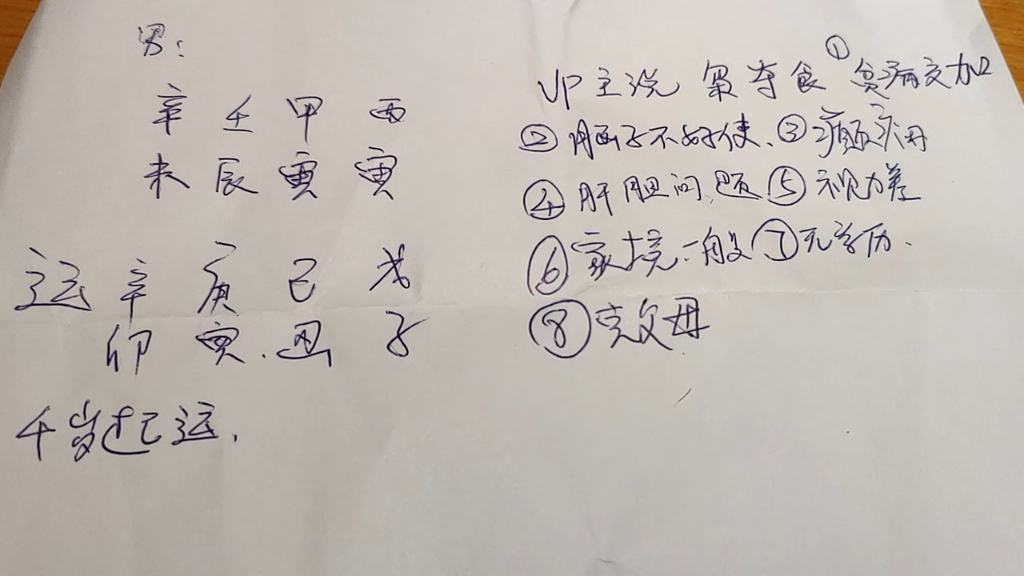 男:
辛 壬 甲 丙
未 辰 寅 寅
运 辛 庚 己 戊
卯 寅. 丑 子
千岁起己运.
UP主说 枭夺食 ①贫病交加
②脑子不好使、③癫痫
④肝胆问题 ⑤视力差
⑥家境一般 ⑦无学历.
⑧克父母